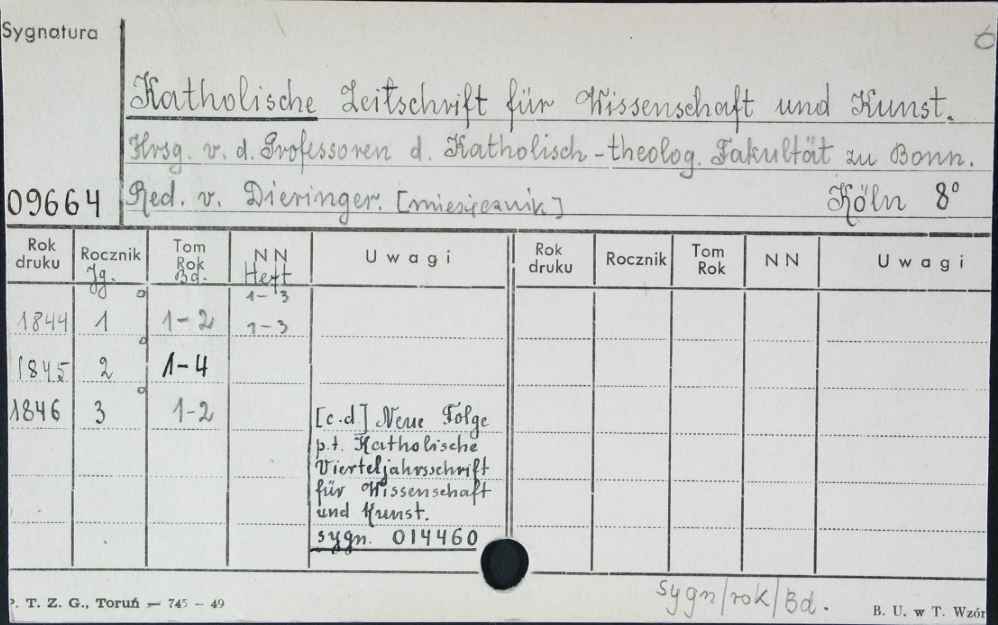 Sygnatura
6
Katholische Zeitschrift für Wissenschaft und Kunst.
Hrsg. v. d. Professoren d. Katholisch-theolog. Fakultät zu Bonn.
09664 Red. v. Dieringer. [miesięcznik] Köln 8°
Rok druku Rocznik Tom Rok NN Uwagi Rok druku Rocznik Tom Rok NN Uwagi
Jg. Bd. Heft
1-3
1844 1 1-2 1-3
1845 2 1-4
1846 3 1-2 [c.d] Neue Folge
p.t. Katholische
Vierteljahrsschrift
für Wissenschaft
und Kunst.
sygn. 014460
sygn/rok/Bd.
P. T. Z. G., Toruń — 745 - 49 B. U. w T. Wzór